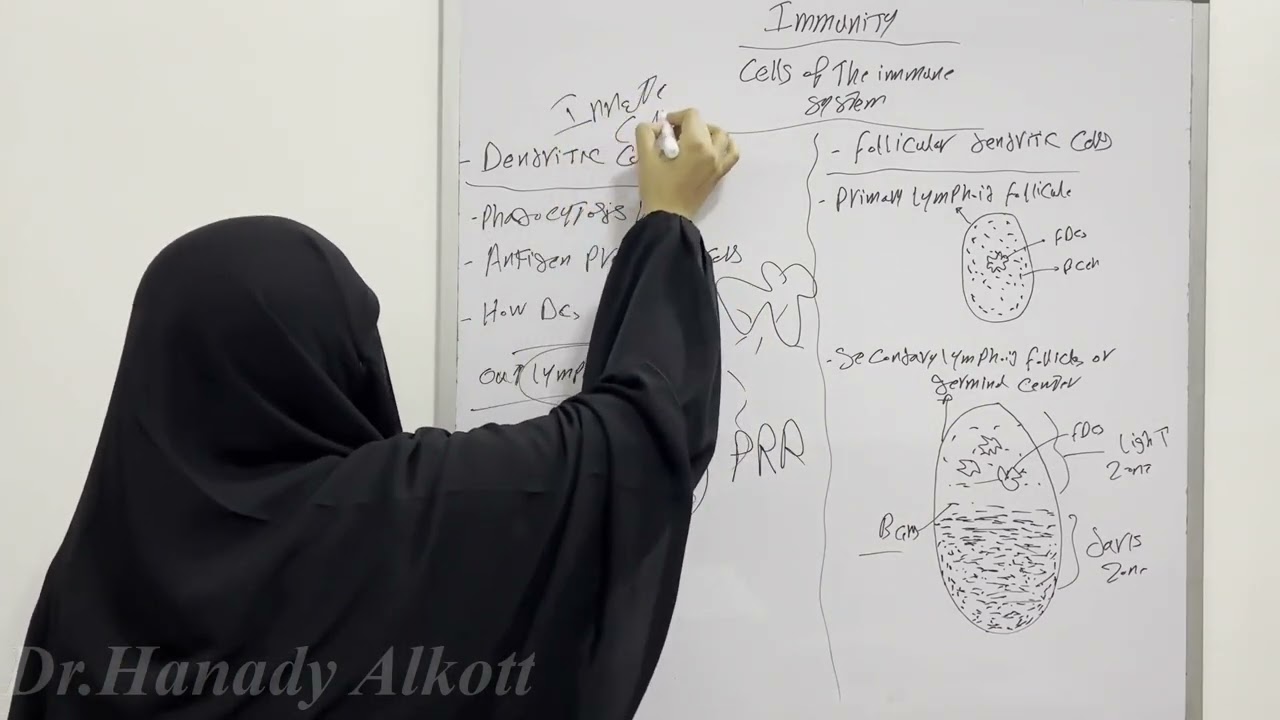 Immunity
Cells of The immune
system
Innate
- Dendritic
- Phagocytosis
- Antigen
- How DCs
out lymph
PRR
- follicular dendritic Cells
- Primary lymphoid follicule
FDCs
B cell
- Secondary lymphoid follicles or
germinal center
FDCs
light
zone
B cells
dark
zone
Dr.Hanady Alkott